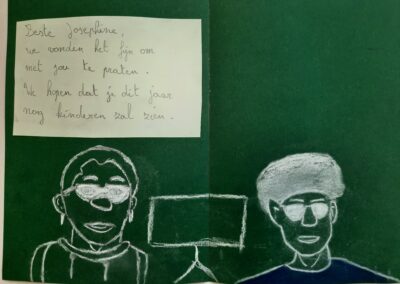 Beste Josephine,
we vonden het fijn om
met jou te praten.
We hopen dat je dit jaar
nog kinderen zal zien.